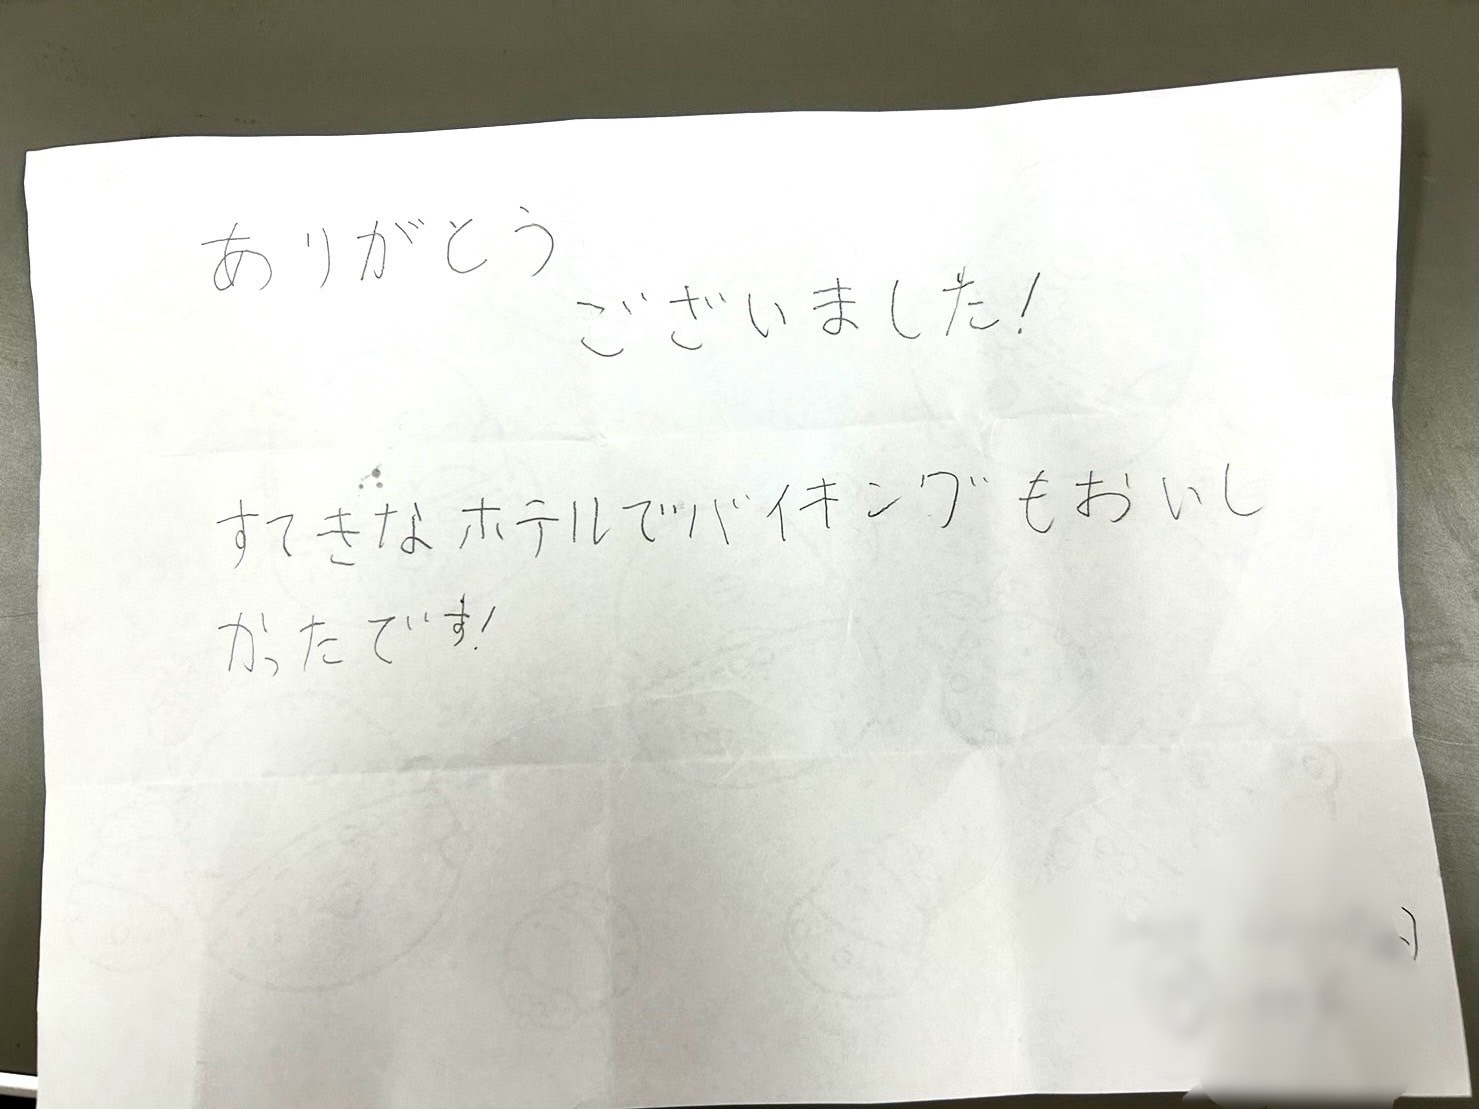 ありがとう
ございました!
すてきなホテルでバイキングもおいし
かったです!